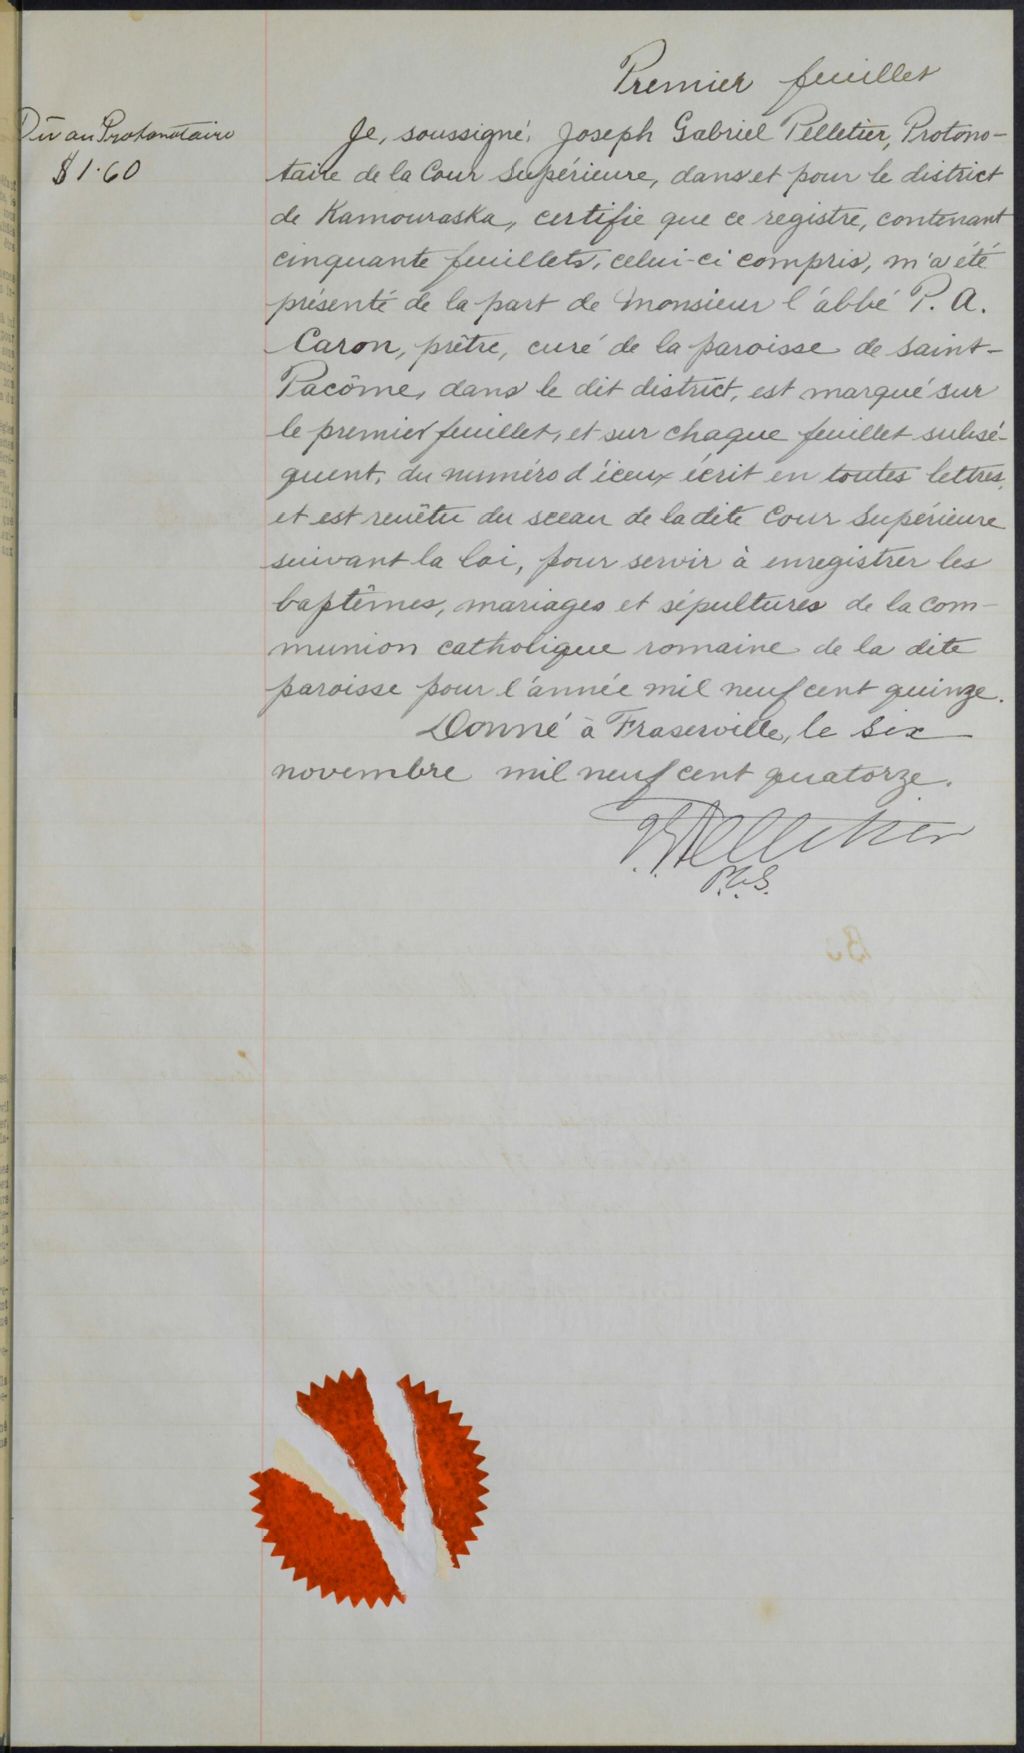 Premier feuillet
Dû au Protonotaire
$1.60
Je, soussigné, Joseph Gabriel Pelletier, Protono-
taire de la Cour Supérieure, dans et pour le district
de Kamouraska, certifie que ce registre, contenant
cinquante feuillets, celui-ci compris, m'a été
présenté de la part de Monsieur l'abbé P. A.
Caron, prêtre, curé de la paroisse de Saint-
Pacôme, dans le dit district, est marqué sur
le premier feuillet, et sur chaque feuillet subsé-
quent, du numéro d'iceux écrit en toutes lettres,
et est revêtu du sceau de la dite Cour Supérieure
suivant la loi, pour servir à enregistrer les
baptêmes, mariages et sépultures de la com-
munion catholique romaine de la dite
paroisse pour l'année mil neuf cent quinze.
Donné à Fraserville, le six
novembre mil neuf cent quatorze.
Pelletier
P.C.S.